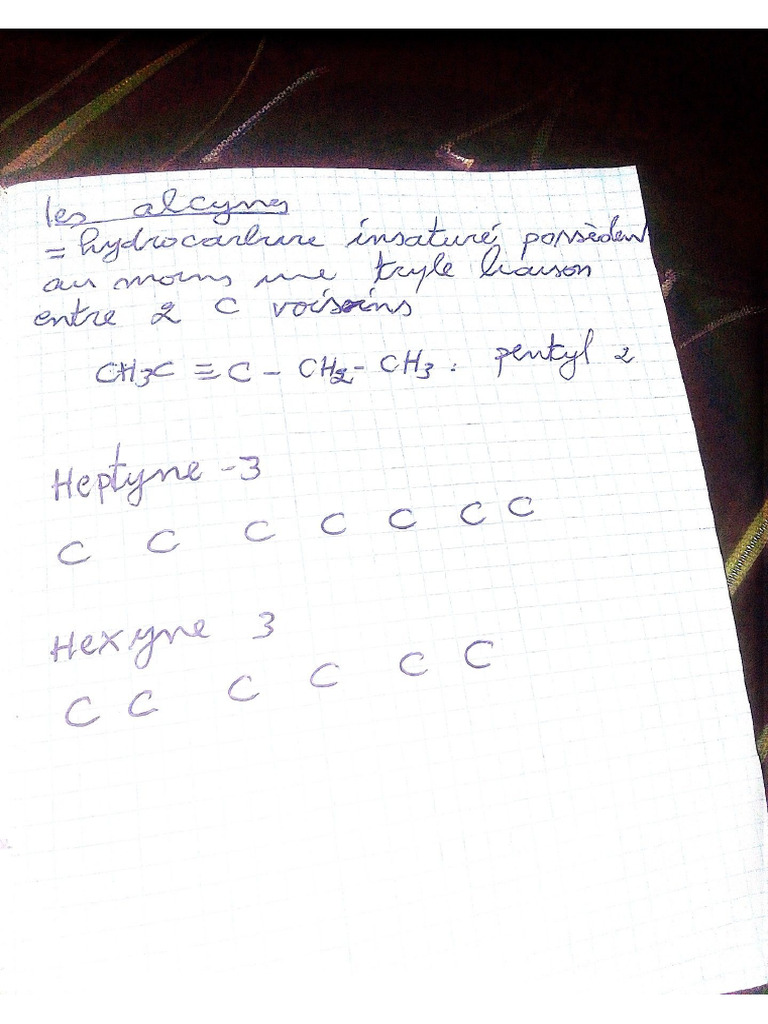 les alcynes
= hydrocarbure insaturé possèdent
au moins une tryle liaison
entre 2 C voisins
CH3C ≡ C - CH2 - CH3 : pentyl 2
Heptyne -3
C C C C C C C
Hexyne 3
C C C C C C